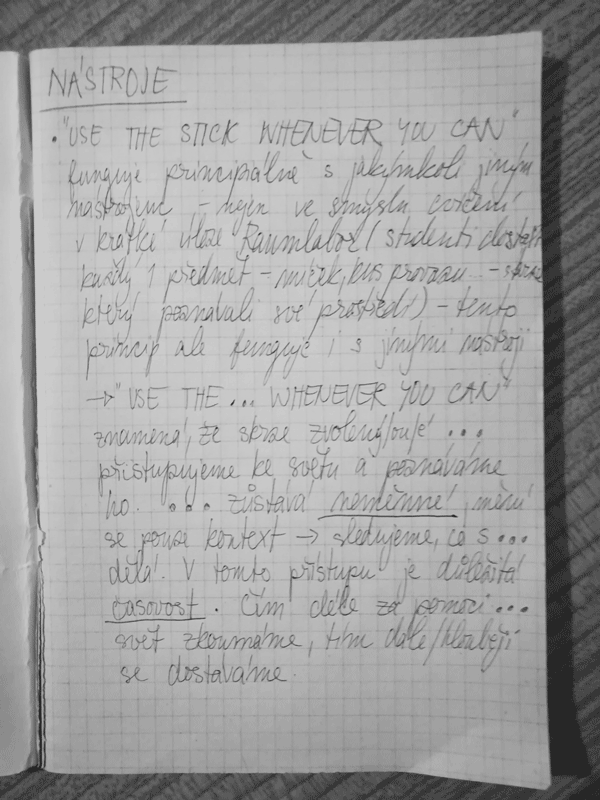 NÁSTROJE
• "USE THE STICK WHENEVER YOU CAN"
funguje principiálně s jakýmkoli jiným
nástrojem - nejen ve smyslu cvičení
v krátké úloze Raumlabor (studenti dostali
každý 1 předmět - míček, kus provazu - skrze
který poznávali své prostředí) - tento
princip ale funguje i s jinými nástroji
→ "USE THE ... WHENEVER YOU CAN"
znamená, že skrze zvolený/ou/é ...
přistupujeme ke světu a poznáváme
ho. ... zůstává neměnné, mění
se pouze kontext → sledujeme, co s ...
dělá. V tomto přístupu je důležitá
časovost. Čím déle za pomoci ...
svět zkoumáme, tím dále/hlouběji
se dostáváme.